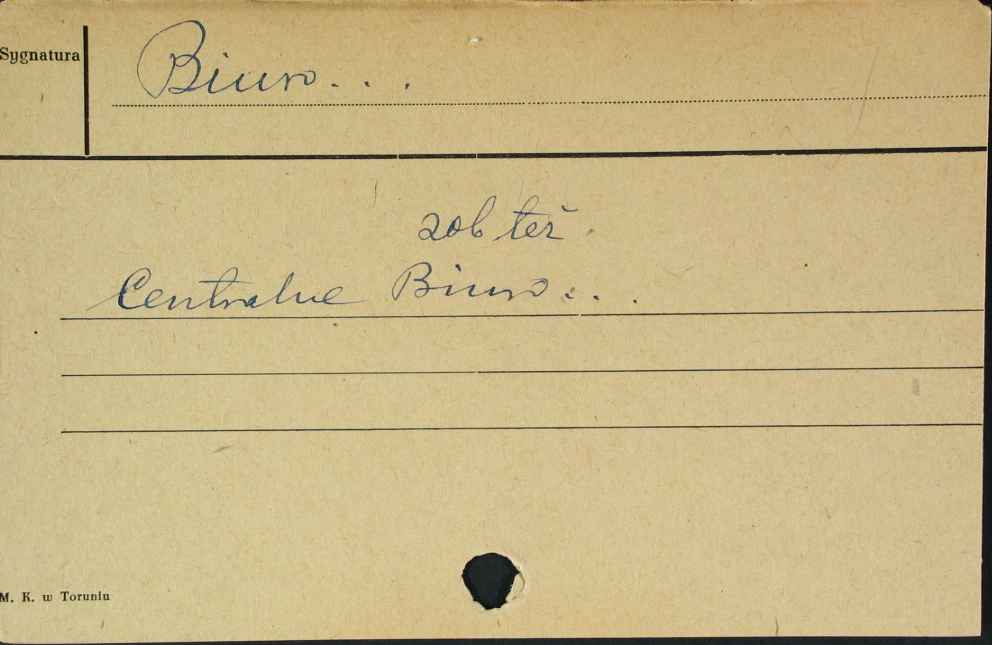 Sygnatura
Biuro...
zob też.
Centralne Biuro...
M. K. w Toruniu